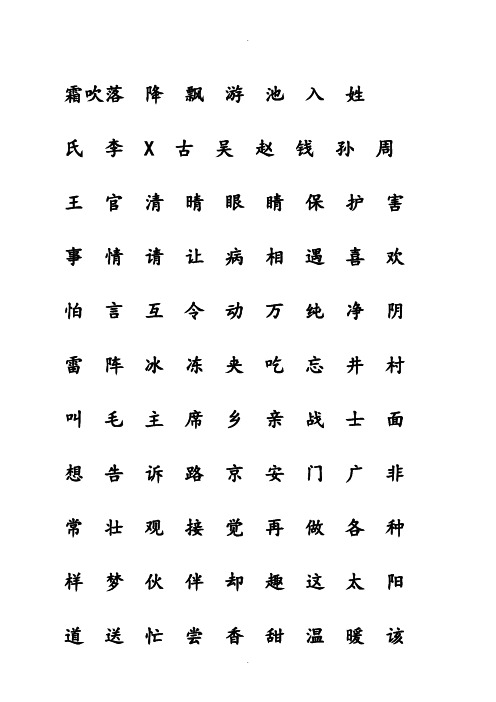 霜吹落 降 飘 游 池 入 姓
氏 李 X 古 吴 赵 钱 孙 周
王 官 清 晴 眼 睛 保 护 害
事 情 请 让 病 相 遇 喜 欢
怕 言 互 令 动 万 纯 净 阴
雷 阵 冰 冻 夹 吃 忘 井 村
叫 毛 主 席 乡 亲 战 士 面
想 告 诉 路 京 安 门 广 非
常 壮 观 接 觉 再 做 各 种
样 梦 伙 伴 却 趣 这 太 阳
道 送 忙 尝 香 甜 温 暖 该